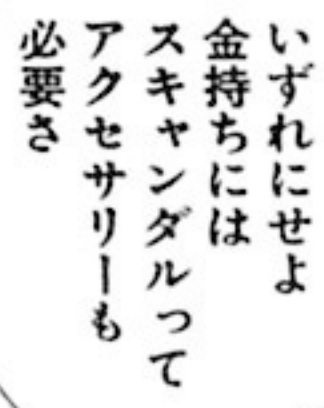 いずれにせよ
金持ちには
スキャンダルって
アクセサリーも
必要さ